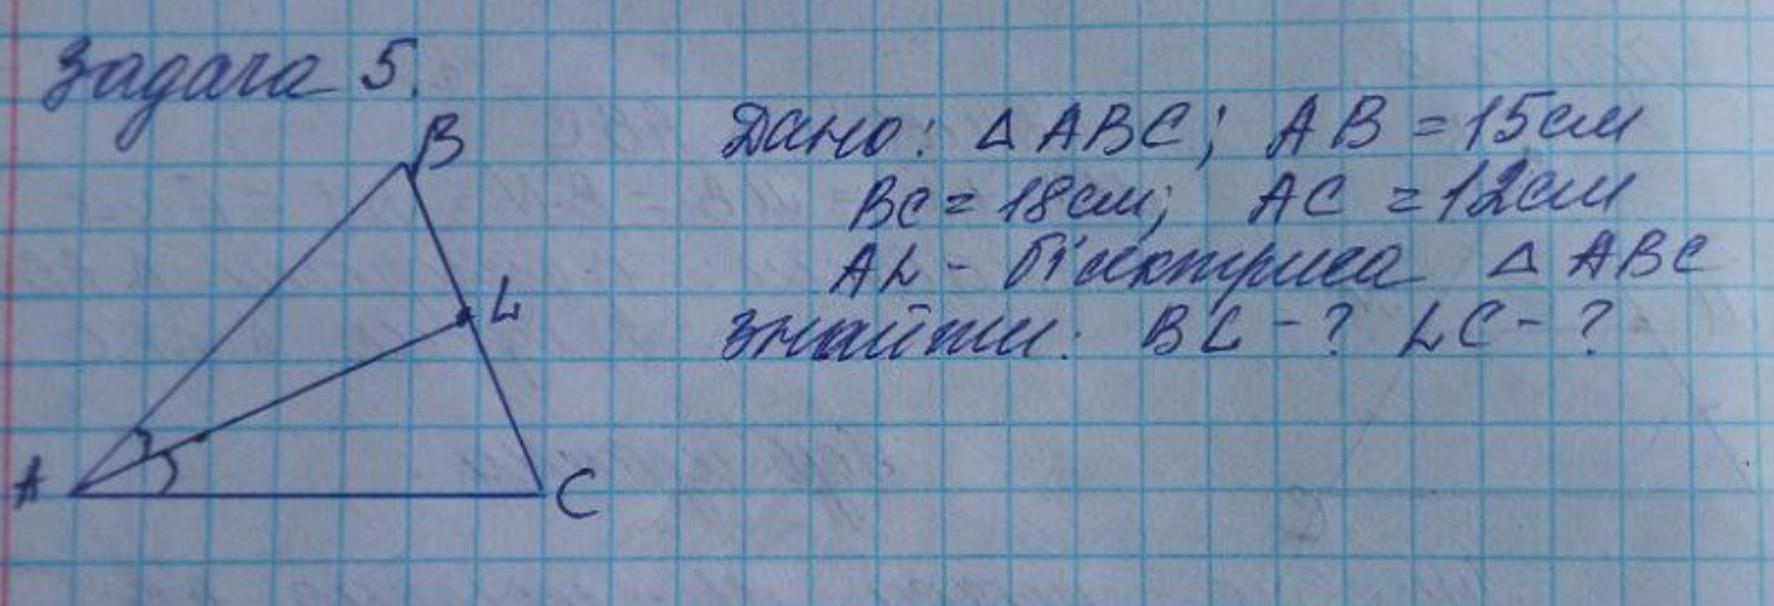 Задача 5.
Дано: △ ABC; AB = 15см
BC = 18см; AC = 12см
AL - бісектриса △ ABC
Знайти: BL - ? LC - ?
B
L
A
C